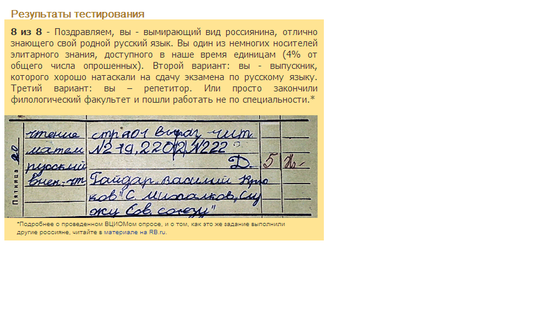 Результаты тестирования
8 из 8 - Поздравляем, вы - вымирающий вид россиянина, отлично
знающего свой родной русский язык. Вы один из немногих носителей
элитарного знания, доступного в наше время единицам (4% от
общего числа опрошенных). Второй вариант: вы - выпускник,
которого хорошо натаскали на сдачу экзамена по русскому языку.
Третий вариант: вы – репетитор. Или просто закончили
филологический факультет и пошли работать не по специальности.*
Пятница
чтение стр 101 выраз чит
матем №219, 220(2), №222
русский Д. 5
внекл. чт Гайдар. Василий Крю
ков" С. Михалков, "Слу
жу Сов. союзу"
*Подробнее о проведенном ВЦИОМом опросе, и о том, как это же задание выполнили
другие россияне, читайте в материале на RB.ru.